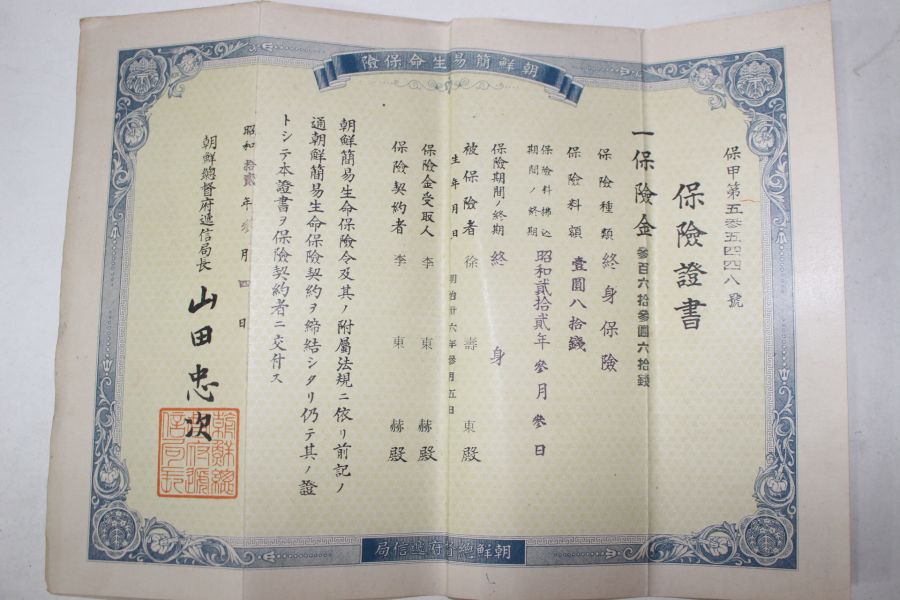 朝鮮簡易生命保險
保甲第五參五四四八號
保險證書
一保險金 參百六拾參圓六拾錢
保險種類 終身保險
保險料額 壹圓八拾錢
保險料拂込期間ノ終期 昭和貳拾貳年參月參日
保險期間ノ終期 終身
被保險者 徐壽東殿
生年月日 明治廿六年參月五日
保險金受取人 李東赫殿
保險契約者 李東赫殿
朝鮮簡易生命保險令及其ノ附屬法規ニ依リ前記ノ
通朝鮮簡易生命保險契約ヲ締結シタリ仍テ其ノ證
トシテ本證書ヲ保險契約者ニ交付ス
昭和拾貳年參月四日
朝鮮總督府遞信局長 山田忠次
朝鮮總
督府遞
信局長
朝鮮總督府遞信局